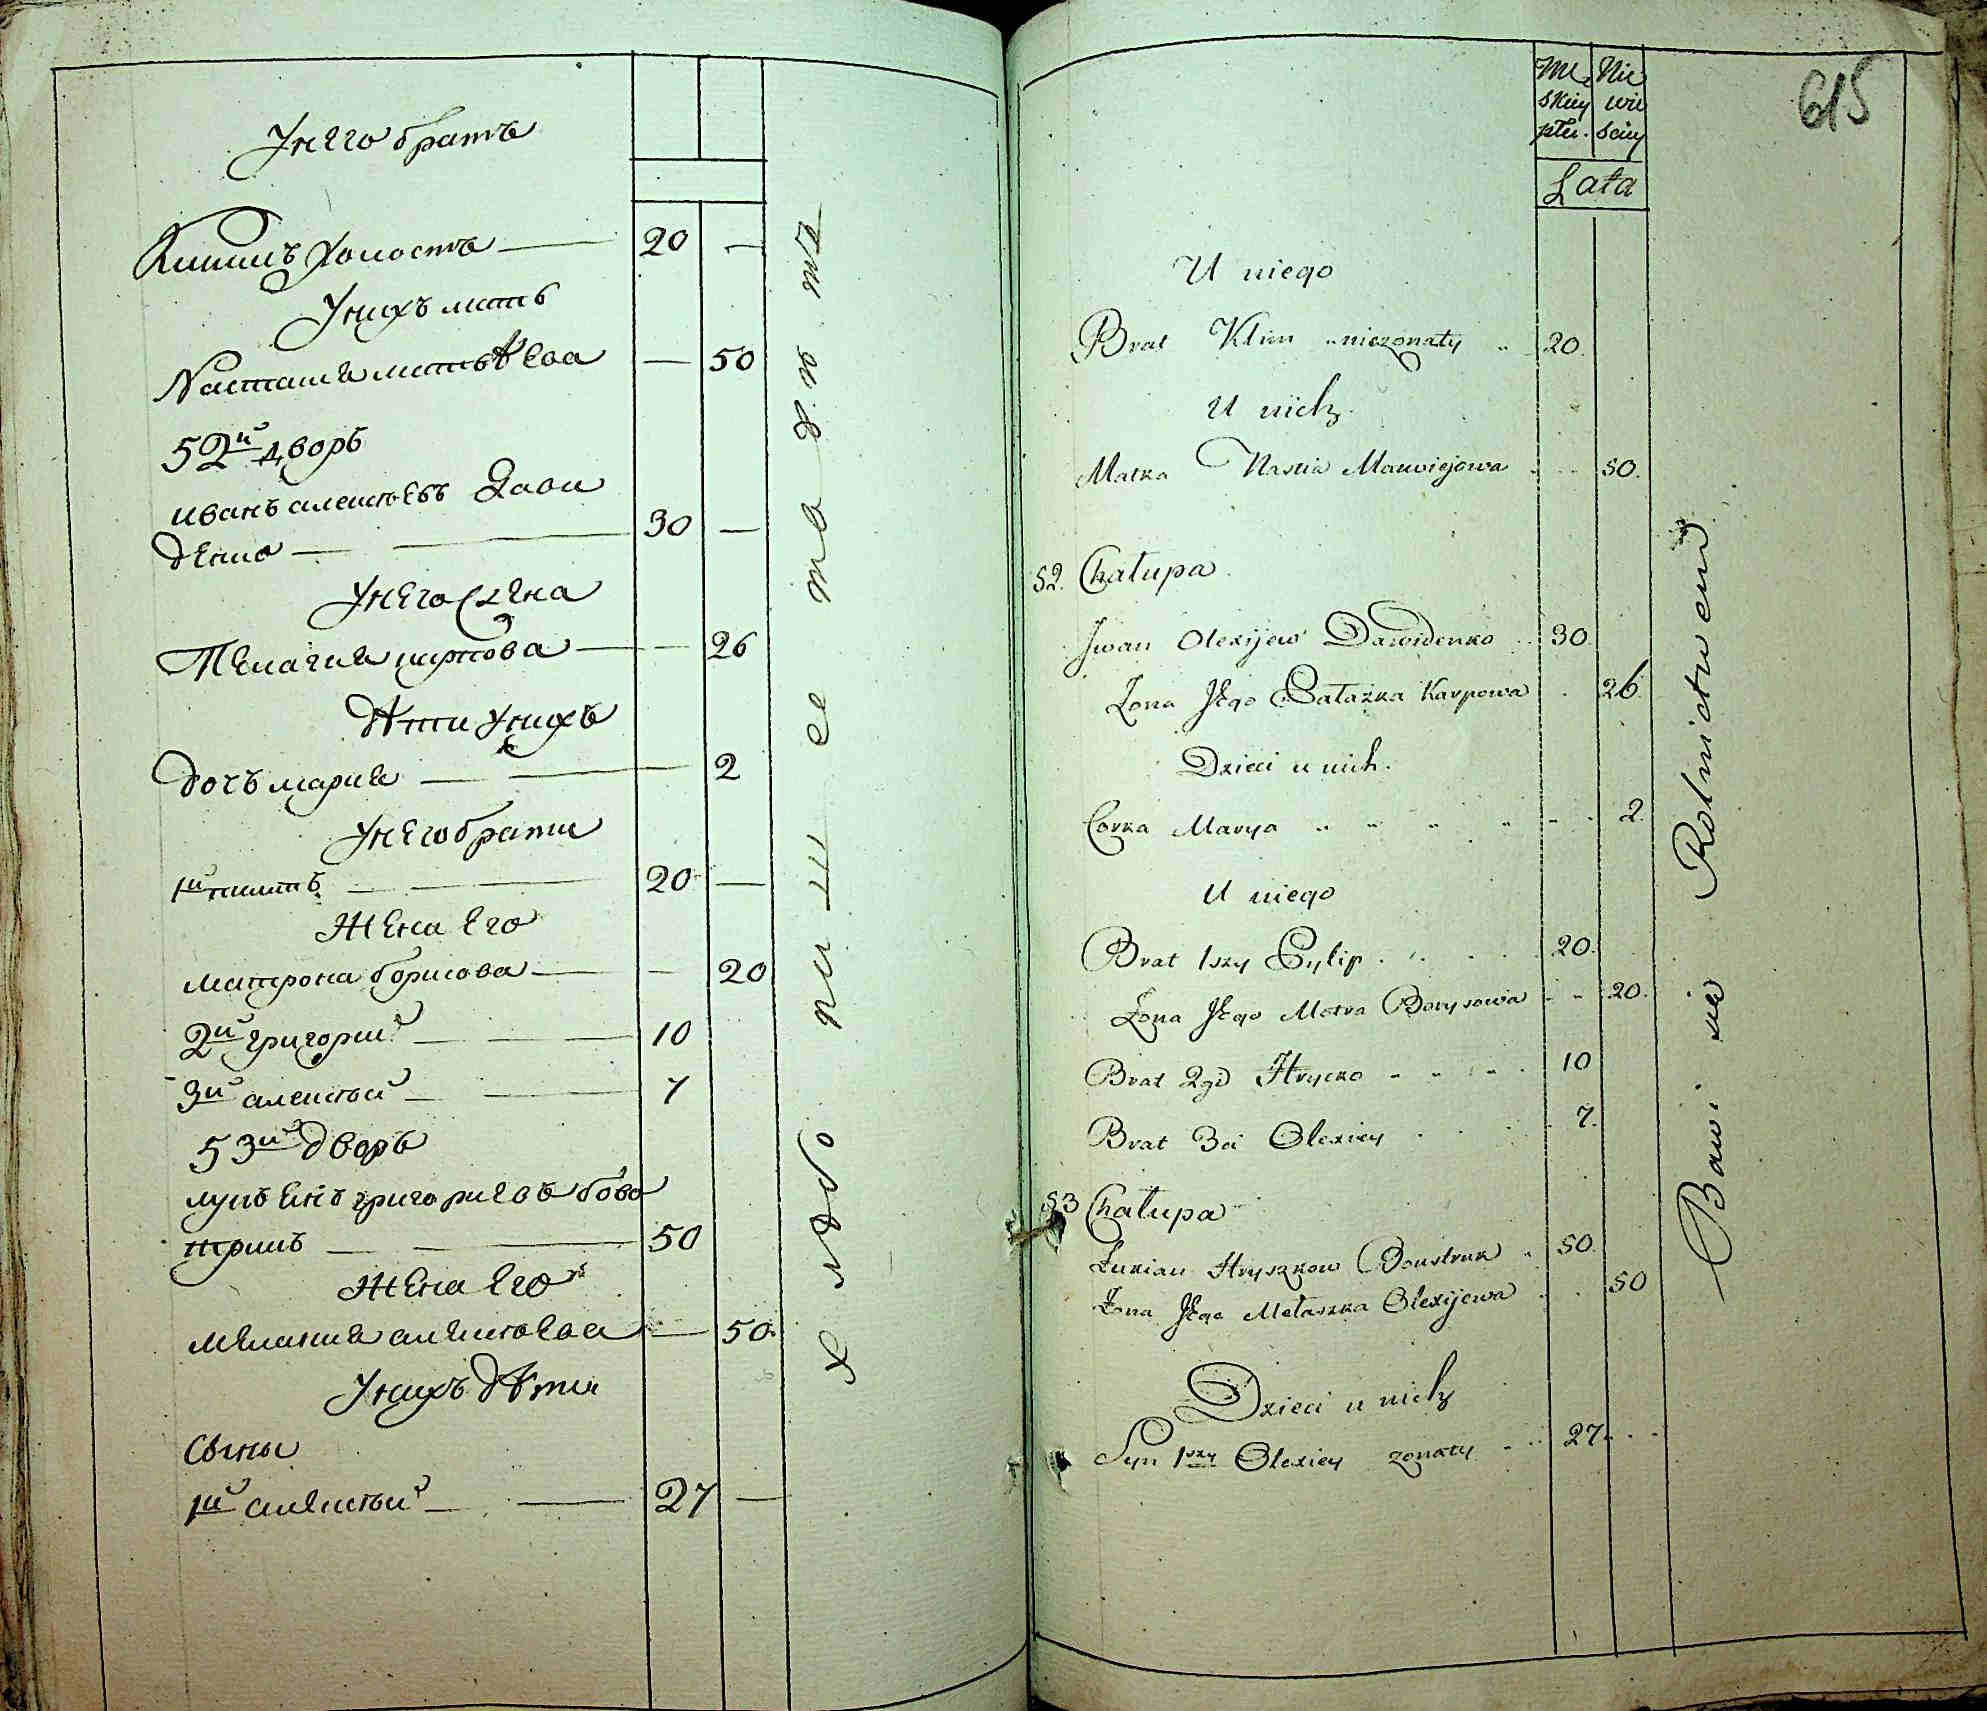 у него братъ
Климъ холостъ — 20 —
у нихъ мать
Настасия матвѣева — 50
52й дворъ
иванъ алексѣевъ Дави
денко — 30 —
у него жена
Пелагия карпова — 26
дѣти у нихъ
дочъ мария — 2
у него брати
1й филипъ — 20 —
жена его
матрона борисова — 20
2й григорий — 10
3й алексѣй — 7
53й дворъ
лукъянъ григориевъ бов
трикъ — 50
жена его
мелания алексѣева — 50
у нихъ дѣти
сыны
1й алексѣй — 27 —
хлѣбопашествуетъ
615
Mę Nie
skiey wie
płci. sciey
Lata
U niego
Brat Klim niezonaty 20.
U nich
Matka Nastia Matwiejowa 50.
52. Chałupa
Iwan Olexijew Dawidenko 30
Zona Jego Pałazka Karpowa 26.
Dzieci u nich.
Corka Marya 2.
U niego
Brat 1szy Pylip 20.
Zona Jego Motra Borysowa 20.
Brat 2gi Hrycko 10
Brat 3ci Olexiey 7.
53 Chałupa
Łukian Hryszkow Bowtruk 50.
Zona Jego Mełaszka Olexijewa 50
Dzieci u nich
Syn 1szy Olexiey zonaty 27.
Bawi sie Rolnictwem